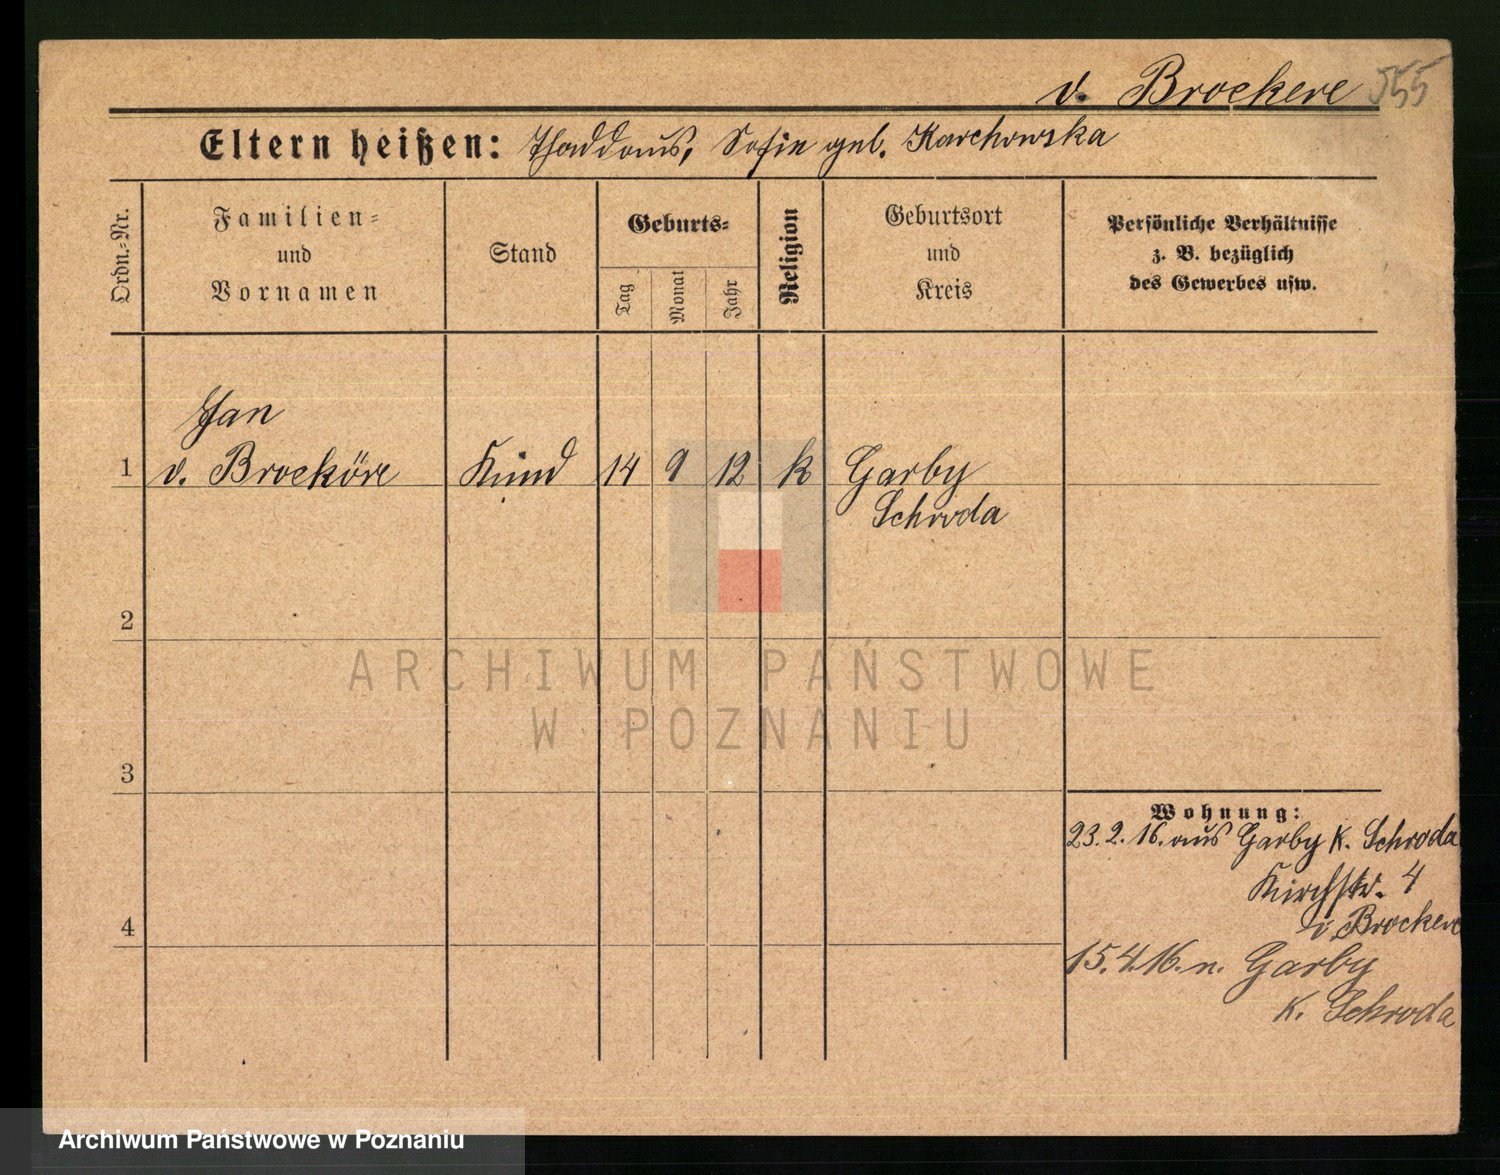 v. Brockere 555
Eltern heißen: Thaddäus, Sofie geb. Karchowska
Ordn.-Nr.
Familien-
und
Vornamen
Stand
Geburts-
Tag
Monat
Jahr
Religion
Geburtsort
und
Kreis
Persönliche Verhältnisse
z. B. bezüglich
des Gewerbes usw.
Jan
1 v. Broeköre Kind 14 9 12 k Garby
Schroda
2
ARCHIWUM PAŃSTWOWE
W POZNANIU
3
Wohnung:
23.2.16. aus Garby K. Schroda
Kirchstr. 4
v. Brockere
4
15.4.16. n. Garby
K. Schroda
Archiwum Państwowe w Poznaniu